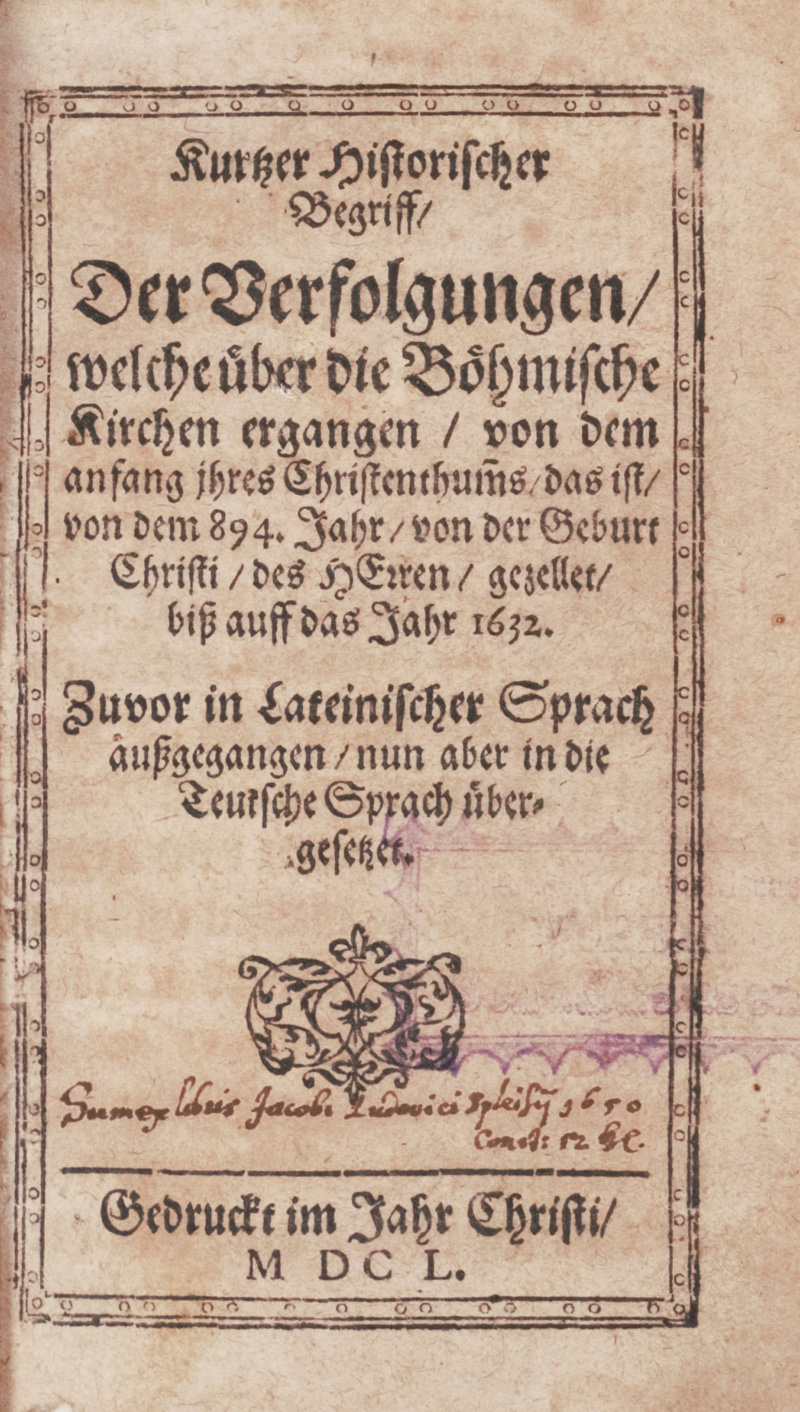 Kurtzer Historischer
Begriff/
Der Verfolgungen/
welche uͤber die Boͤhmische
Kirchen ergangen / von dem
anfang jhres Christenthum̃s/ das ist/
von dem 894. Jahr/ von der Geburt
Christi / des HErren / gezellet/
biß auff das Jahr 1632.
Zuvor in Lateinischer Sprach
außgegangen / nun aber in die
Teutsche Sprach uͤber⸗
gesetzet.
Sum ex libris Jacobi Ludovici 1650
Const: 12
Gedruckt im Jahr Christi/
M DC L.